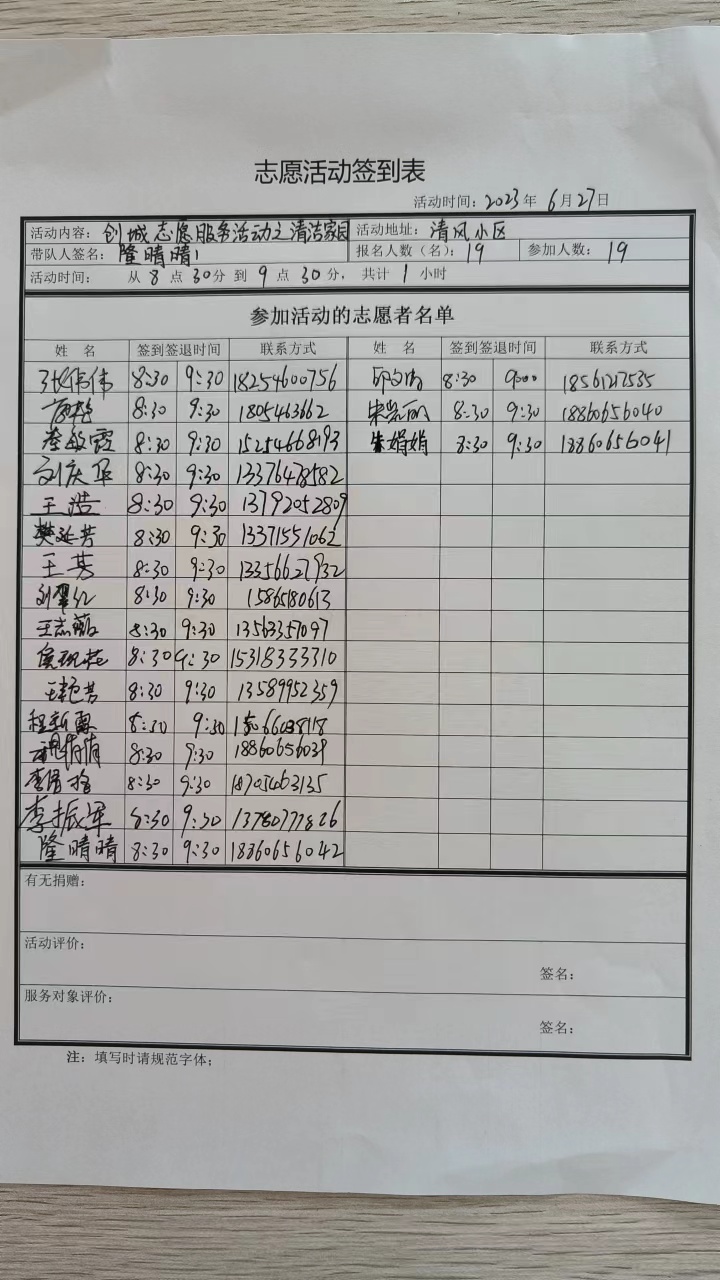 志愿活动签到表
活动时间：2023年 6月27日
活动内容：创城志愿服务活动之清洁家园 活动地址：清风小区
带队人签名：隆晴晴 报名人数（名）：19 参加人数：19
活动时间： 从 8 点 30分 到 9 点 30分， 共计 1 小时
参加活动的志愿者名单
姓 名 签到签退时间 联系方式 姓 名 签到签退时间 联系方式
张伟伟 8:30 9:30 18254600756 8:30 18561217535
8:30 9:30 1805463662 8:30 9:30 18860656040
8:30 9:30 15254668193 朱娟娟 8:30 9:30 18860656041
刘庆华 8:30 9:30 13376478582
王浩 8:30 9:30 13792052809
樊延芳 8:30 9:30 13371551062
王芳 8:30 9:30 13356627932
刘翠红 8:30 9:30 15865180613
王志敏 8:30 9:30 13563357097
8:30 9:30 15318333310
王艳芳 8:30 9:30 13589952359
程新霞 8:30 9:30
8:30 9:30 18860656039
8:30 9:30 18705463135
李振军 8:30 9:30 13780777826
隆晴晴 8:30 9:30 18860656042
有无捐赠：
活动评价：
签名：
服务对象评价：
签名：
注：填写时请规范字体；